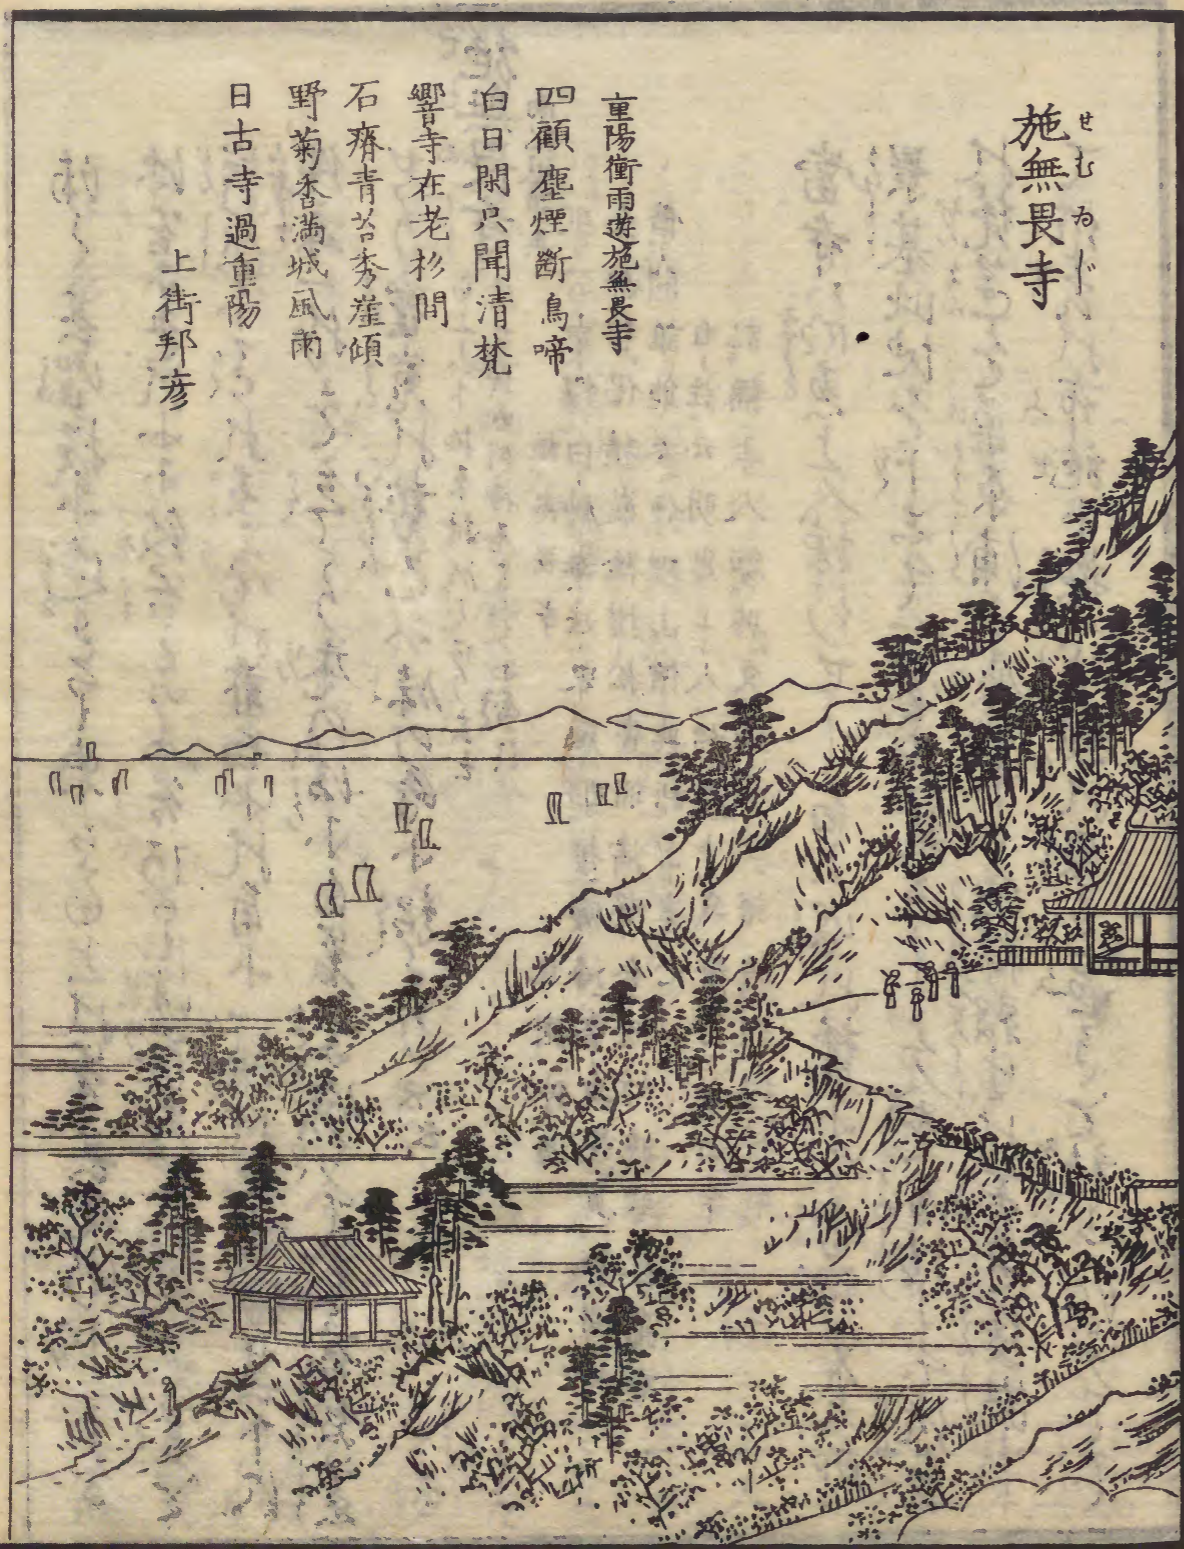 施無畏寺
せむゐじ
重陽衝雨遊施無畏寺
四顧塵煙斷鳥啼
白日閑只聞清梵
響寺在老杉間
石瘠青苔秀崖傾
野菊香満城風雨
日古寺過重陽
上街邦彦